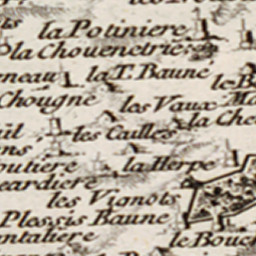 la Potiniere
la Chouenetrie
neau la T. Baune
Chougne les Vaux
les Cailles la Che
la Herpe
outiere
eardiere
les Vignots
Plessis Baune
ntaliere le Bouc